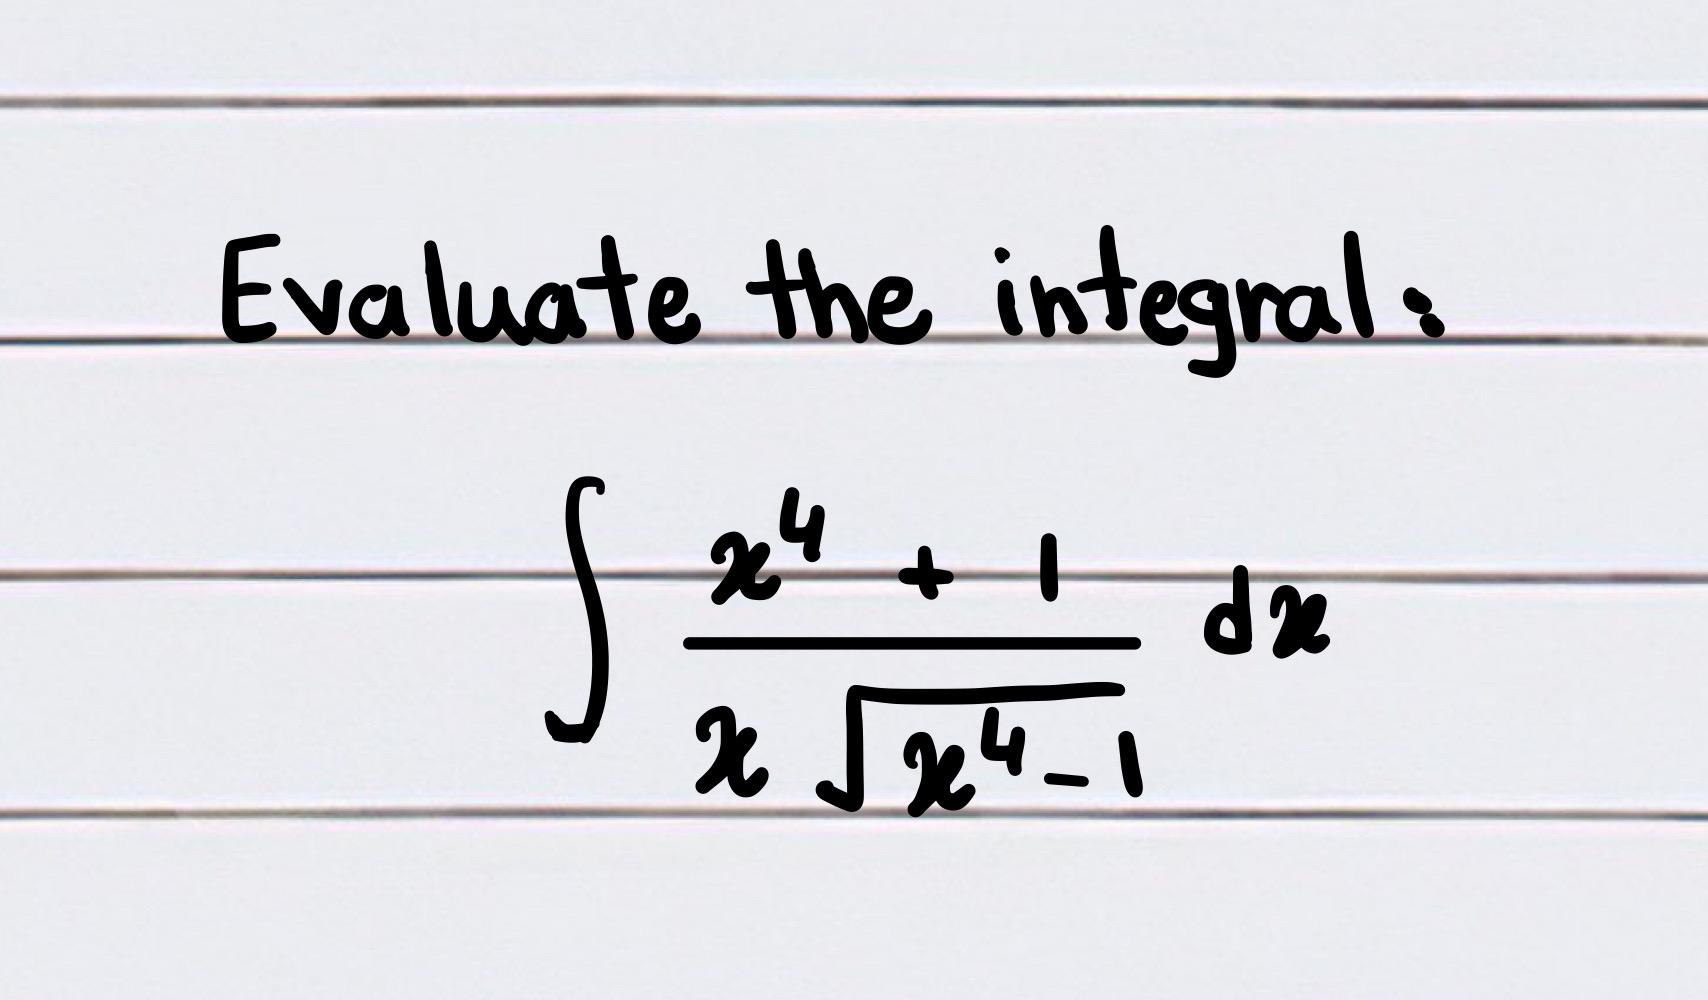 Evaluate the integral:
∫ (x⁴ + 1) / (x √(x⁴ - 1)) dx